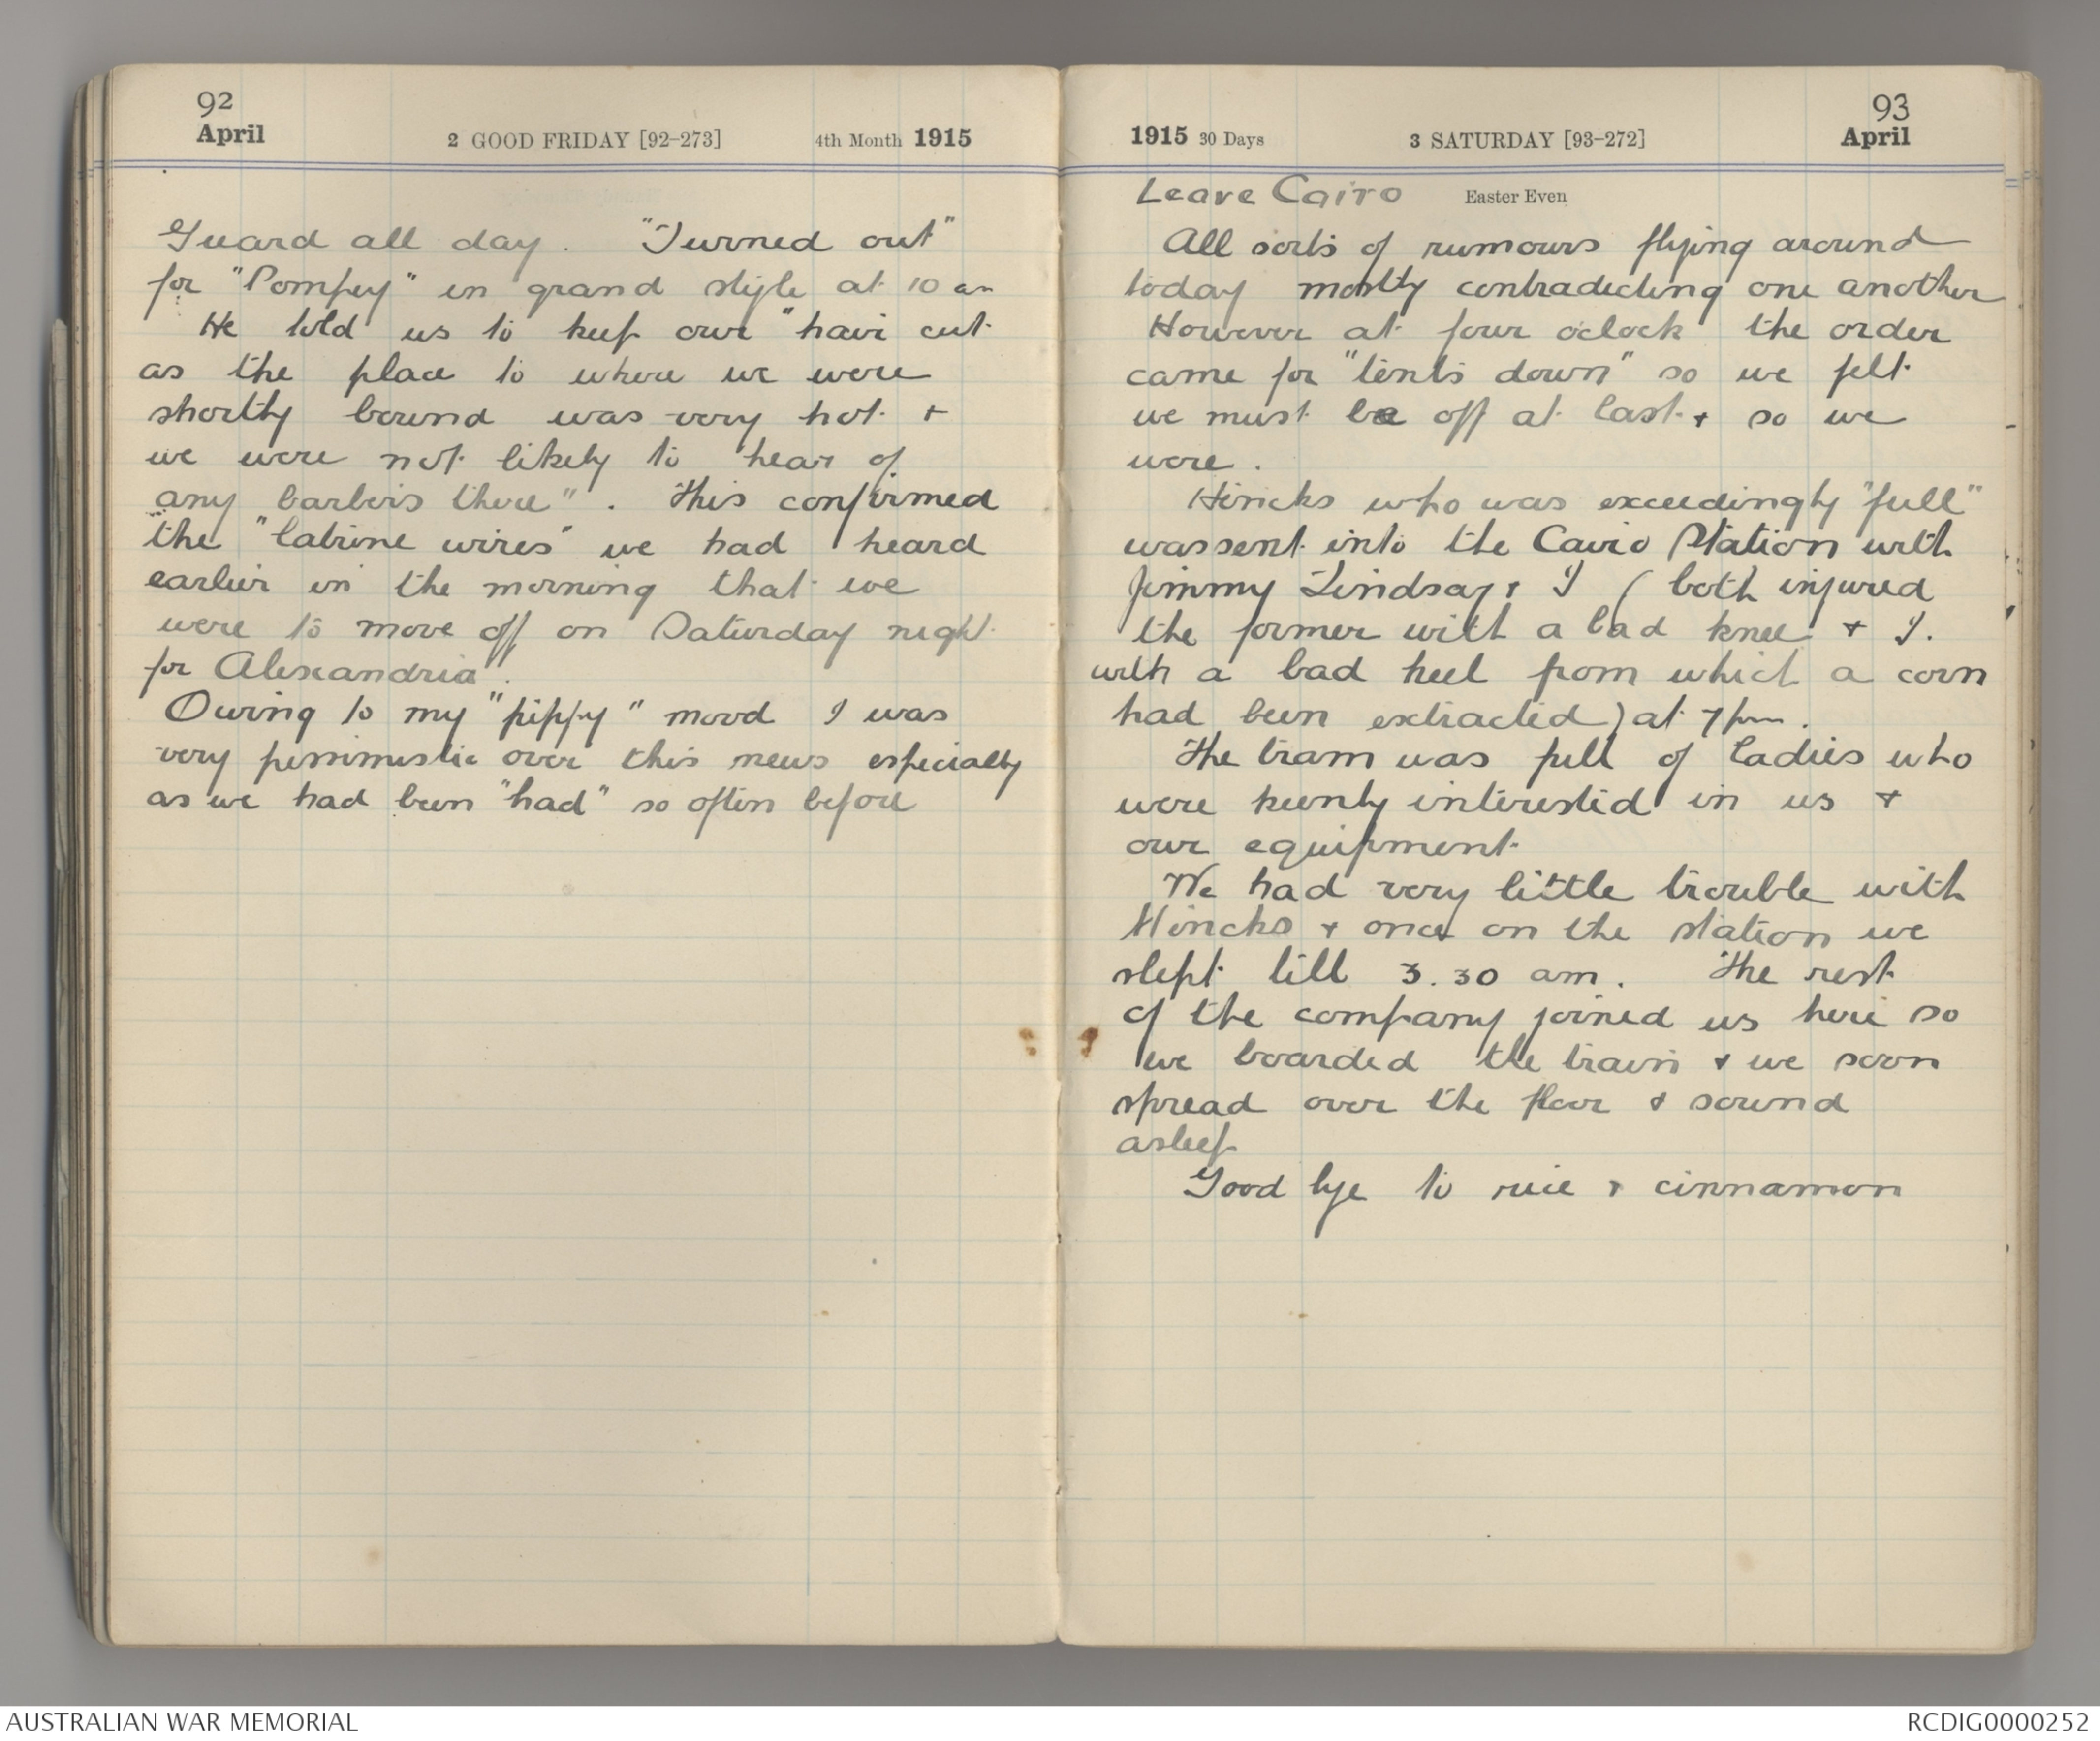 92
April 2 GOOD FRIDAY [92-273] 4th Month 1915
Guard all day. "Turned out"
for "Pompey" in grand style at 10 am
He told us to keep our "hair cut
as the place to where we were
shortly bound was very hot +
we were not likely to hear of
any barbers there". This confirmed
the "latrine wires" we had heard
earlier in the morning that we
were to move off on Saturday night
for Alexandria.
Owing to my "pippy" mood I was
very pessimistic over this news especially
as we had been "had" so often before
93
1915 30 Days 3 SATURDAY [93-272] April
Leave Cairo Easter Even
All sorts of rumours flying around
today mostly contradicting one another
However at four oclock the order
came for "tents down" so we felt
we must be off at last + so we
were.
Hincks who was exceedingly "full"
was sent into the Cairo Station with
Jimmy Lindsay + I (both injured
the former with a bad knee + I.
with a bad heel from which a corn
had been extracted) at 7 pm.
The tram was full of ladies who
were keenly interested in us +
our equipment.
We had very little trouble with
Hincks + once on the station we
slept till 3.30 am. The rest
of the company joined us here so
we boarded the train + we soon
spread over the floor & sound
asleep
Good bye to rice + cinnamon
AUSTRALIAN WAR MEMORIAL
RCDIG0000252